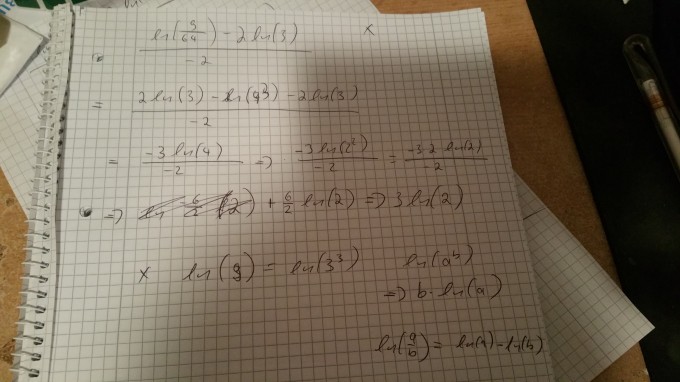 ln(9/64) - 2 ln(3) x
-2
= 2 ln(3) - ln(4³) - 2 ln(3)
-2
= -3 ln(4) / -2 => -3 ln(2²) / -2 = -3·2 ln(2) / -2
=> + 6/2 ln(2) => 3 ln(2)
x ln(9) = ln(3³) ln(aᵇ)
=> b · ln(a)
ln(a/b) = ln(a) - ln(b)